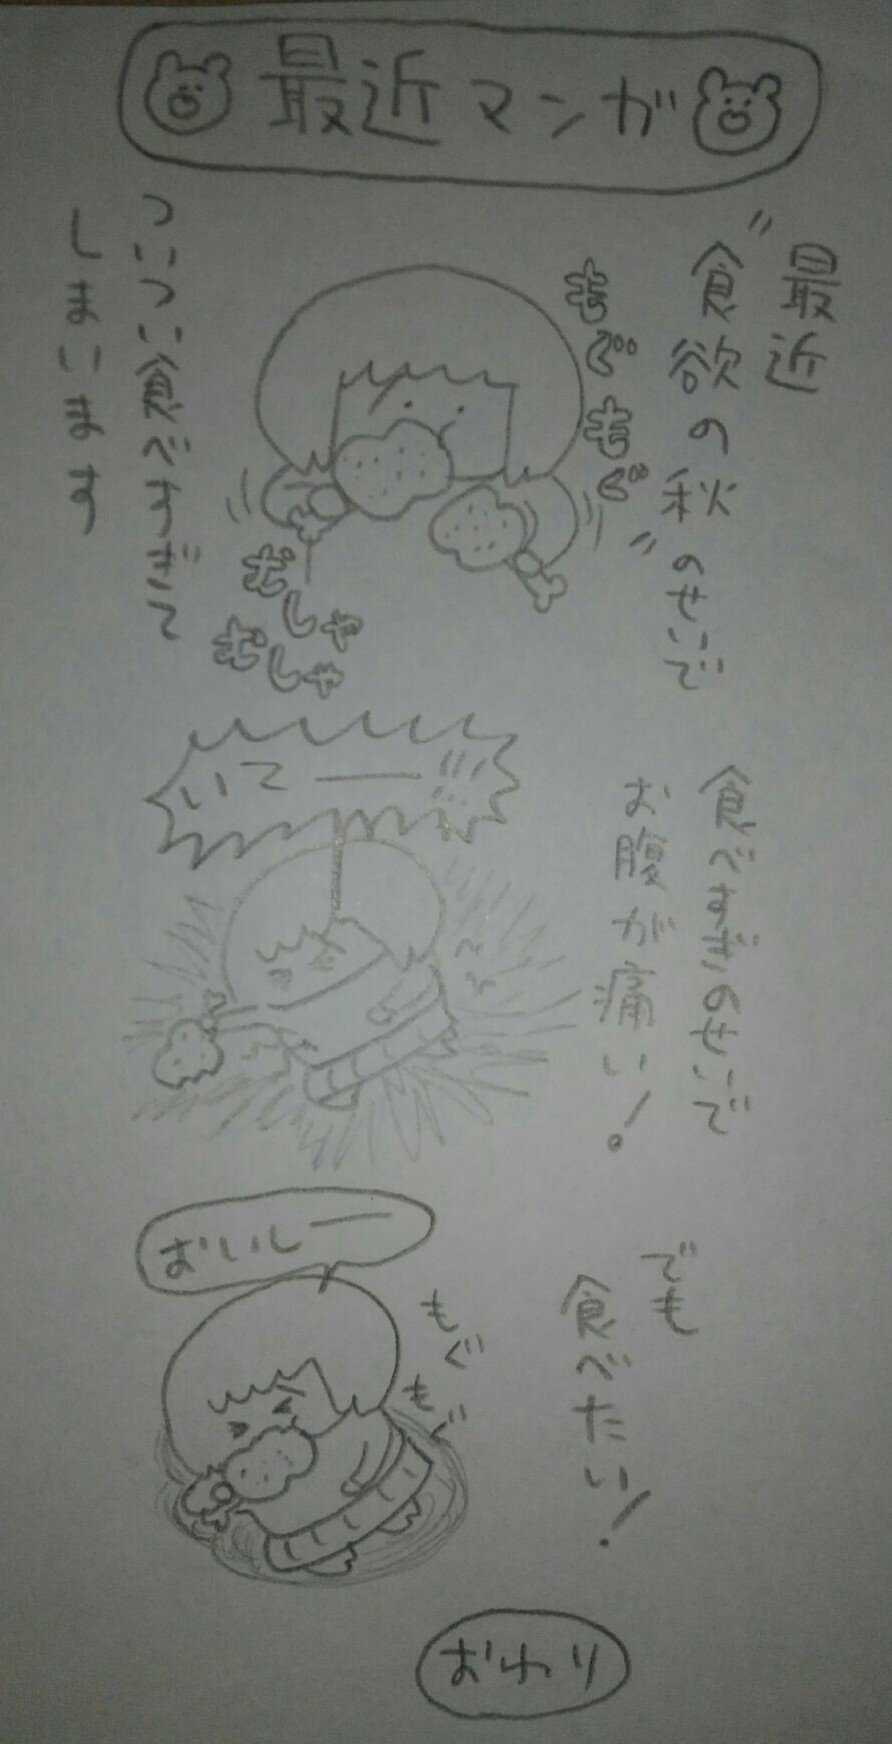 最近マンガ
最近
"食欲の秋"のせいで
もぐもぐ
ついつい食べすぎて
しまいます
むしゃ
むしゃ
食べすぎのせいで
お腹が痛い!
いてー!!!
でも
食べたい!
もぐ
もぐ
おいしー
おわり